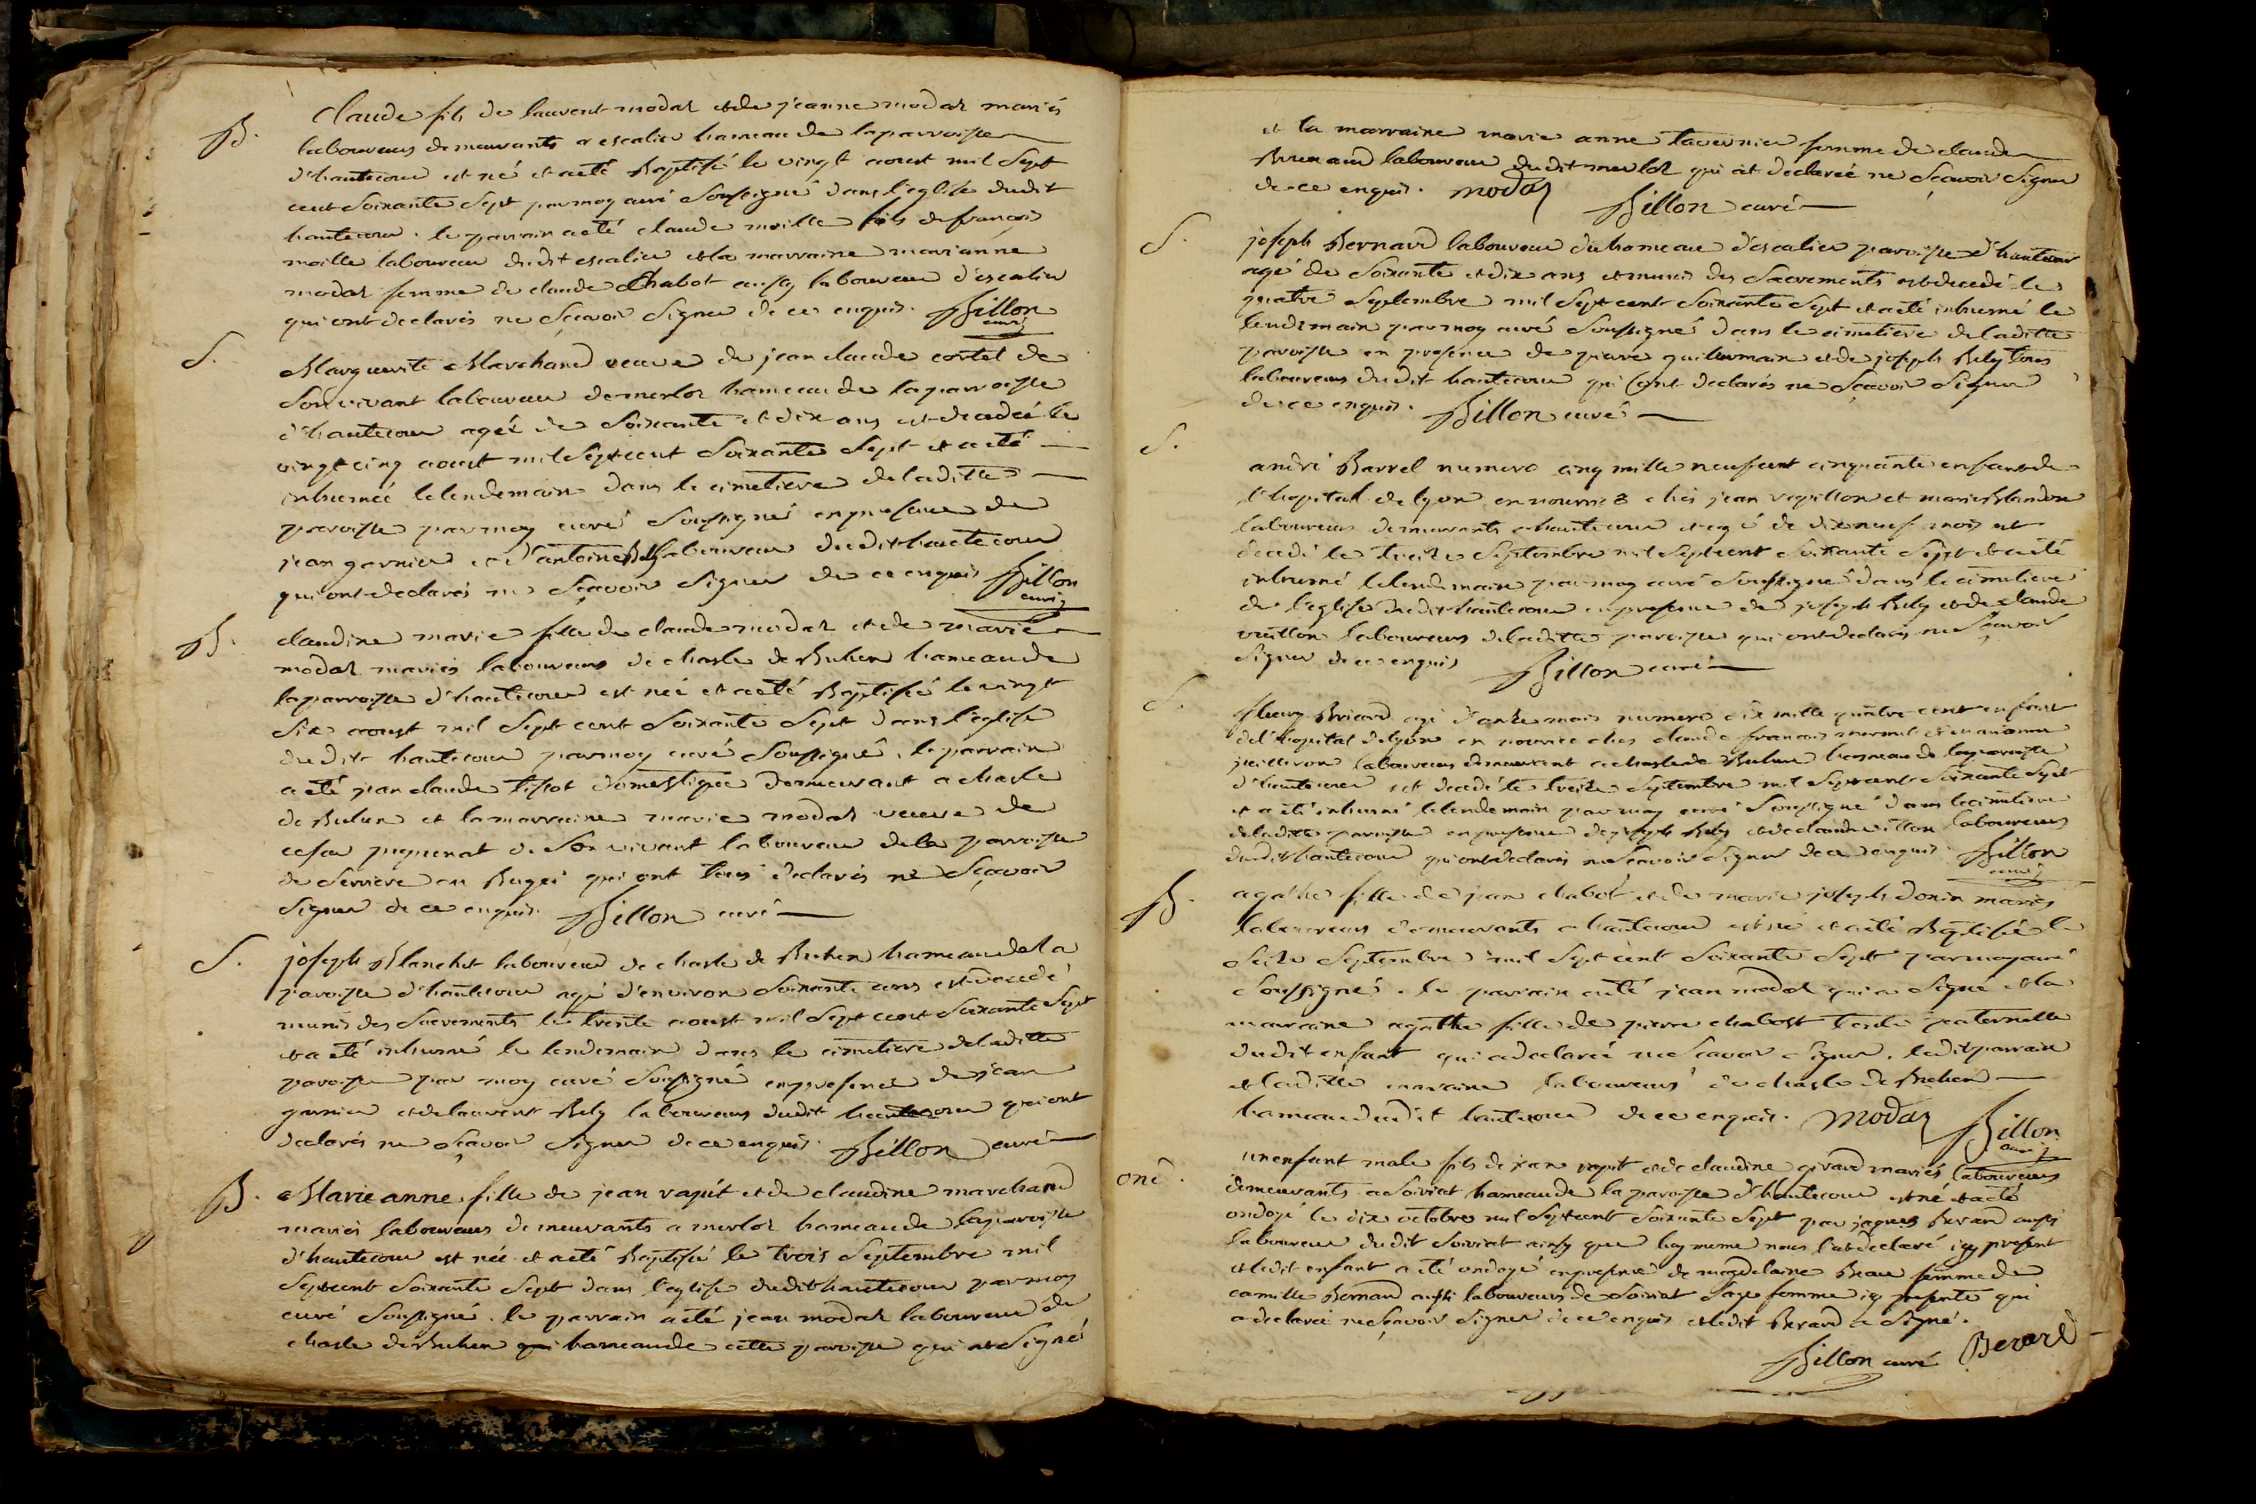 B. Claude fils de laurent modas et de jeanne modas mariés
laboureurs demeurants a escalier hameau de la parroisse
d'hautecour est né et a eté Baptisé le vingt aoust mil Sept
cent Soixante Sept par moy curé Soussigné dans l'eglise dudit
hautecour. le parrain a eté claude moille fils de françois
moille laboureur dudit escalier et la marraine marianne
modas femme de claude Chabot aussy laboureur d'escalier
qui ont declarés ne Sçavoir Signer de ce enquis. Billon
curé
S. Marguerite Marchand veuve de jean claude cortel de
Son vivant laboureur de merlos hameau de la parroisse
d'hautecour agée de Soixante et dix ans est decedée le
vingt cinq aoust mil Sept cent Soixante Sept et a eté
inhumée le lendemain dans le cimetiere de laditte
paroisse par moy curé Soussigné en presence de
jean garnier et d'antoine Bely laboureurs dudit hautecour
qui ont declarés ne Sçavoir Signer de ce enquis Billon
curé
B. claudine marie fille de claude modas et de marie
modas mariés laboureurs de chasle de Buhen hameau de
la parroisse d'hautecour est née et a eté Baptisée le vingt
Six aoust mil Sept cent Soixante Sept dans l'eglise
dudit hautecour par moy curé Soussigné. le parrain
a eté jean claude tissot domestique demeurant a chasle
de Buhen et la marraine marie modas veuve de
piquenat de Son vivant laboureur de la parroisse
de Serriere en Bugei qui ont tous declarés ne Sçavoir
Signer de ce enquis. Billon curé
S. joseph Blanchet laboureur de chasle de Buhen hameau de la
paroisse d'hautecour agé d'environ Soixante ans est decedé
munis des Sacrements le trente aoust mil Sept cent Soixante Sept
et a eté inhumé le lendemain dans le cimetiere de laditte
paroisse par moy curé Soussigné en presence de jean
garnier et de laurent Bely laboureurs dudit hautecour qui ont
declarés ne Sçavoir Signer de ce enquis. Billon curé
B. Marie anne fille de jean vapit et de claudine marchand
mariés laboureurs demeurants a merlos hameau de la paroisse
d'hautecour est née et a eté Baptisée le trois Septembre mil
Sept cent Soixante Sept dans l'eglise dudit hautecour par moy
curé Soussigné. le parrain a eté jean modas laboureur de
chasle de Buhen qui hameau de cette paroisse qui at Signé
et la marraine marie anne tavernier femme de claude
laboureur dudit merlos qui at declarée ne Sçavoir Signer
de ce enquis. modas Billon curé
S. joseph Bernard laboureur du hameau d'escalier paroisse d'hautecour
agé de Soixante et dix ans et munis des Sacrements est decedé le
quatre Septembre mil Sept cent Soixante Sept et a eté inhumé le
lendemain par moy curé Soussigné dans le cimetiere de laditte
paroisse en presence de pierre guillermain et de joseph Bely tous
laboureurs dudit hautecour qui ont declarés ne Sçavoir Signer
de ce enquis. Billon curé
S. andré Barrel numero cinq mille neuf cent cinquante enfant de
l'hopital de lyon en nourrice chés jean vapillon et marie Blandon
laboureurs demeurants a hautecour et agé de dix neuf mois est
decedé le treize Septembre mil Sept cent Soixante Sept et a eté
inhumé le lendemain par moy curé Soussigné dans le cimetiere
de l'eglise dudit hautecour en presence de joseph Bely et de claude
vuillon laboureurs de laditte paroisse qui ont declarés ne Sçavoir
Signer de ce enquis Billon curé
S. fleury Briard agé d'onze mois numero dix mille quatre cent enfant
de l'hopital de lyon en nourrice chés claude françois et marianne
laboureurs demeurant a chasle de Buhen hameau de la paroisse
d'hautecour est decedé le treize Septembre mil Sept cent Soixante Sept
et a eté inhumé le lendemain par moy curé Soussigné dans le cimetiere
de laditte paroisse en presence de joseph Bely et de claude vuillon laboureurs
dudit hautecour qui ont declarés ne Sçavoir Signer de ce enquis Billon
curé
B. agathe fille de jean chabot et de marie joseph donin mariés
laboureurs demeurants a hautecour est né et a eté Baptisée le
Seize Septembre mil Sept cent Soixante Sept par moy curé
Soussigné. le parrain a eté jean modas qui a Signé et la
marraine agathe fille de pierre chabost tante paternelle
dudit enfant qui a declarée ne Sçavoir Signer. ledit parrain
et laditte marraine laboureurs de chasle de Buhen
hameau dudit hautecour de ce enquis. modas Billon
curé
ond. un enfant male fils de jean vapit et de claudine girard mariés laboureurs
demeurants a Soiriat hameau de la paroisse d'hautecour est né et a eté
ondoyé le dix octobre mil Sept cent Soixante Sept par jaques Berard aussi
laboureur dudit Soiriat ainsy que luy meme nous l'at declaré icy present
et ledit enfant a eté ondoyé en presence de magdelaine Beau femme de
camille Bernard aussi laboureurs de Soiriat Sage femme icy presente qui
a declarée ne Sçavoir Signer de ce enquis et ledit Berard a Signé.
Billon curé Berard